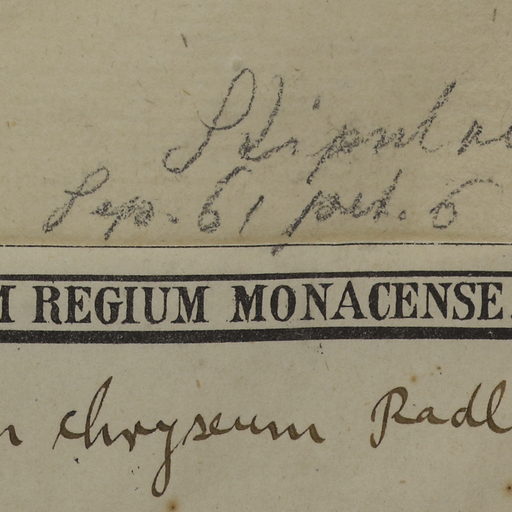 Stipulae
Sep. 6, pet. 6
M REGIUM MONACENSE.
n chryseum Radl